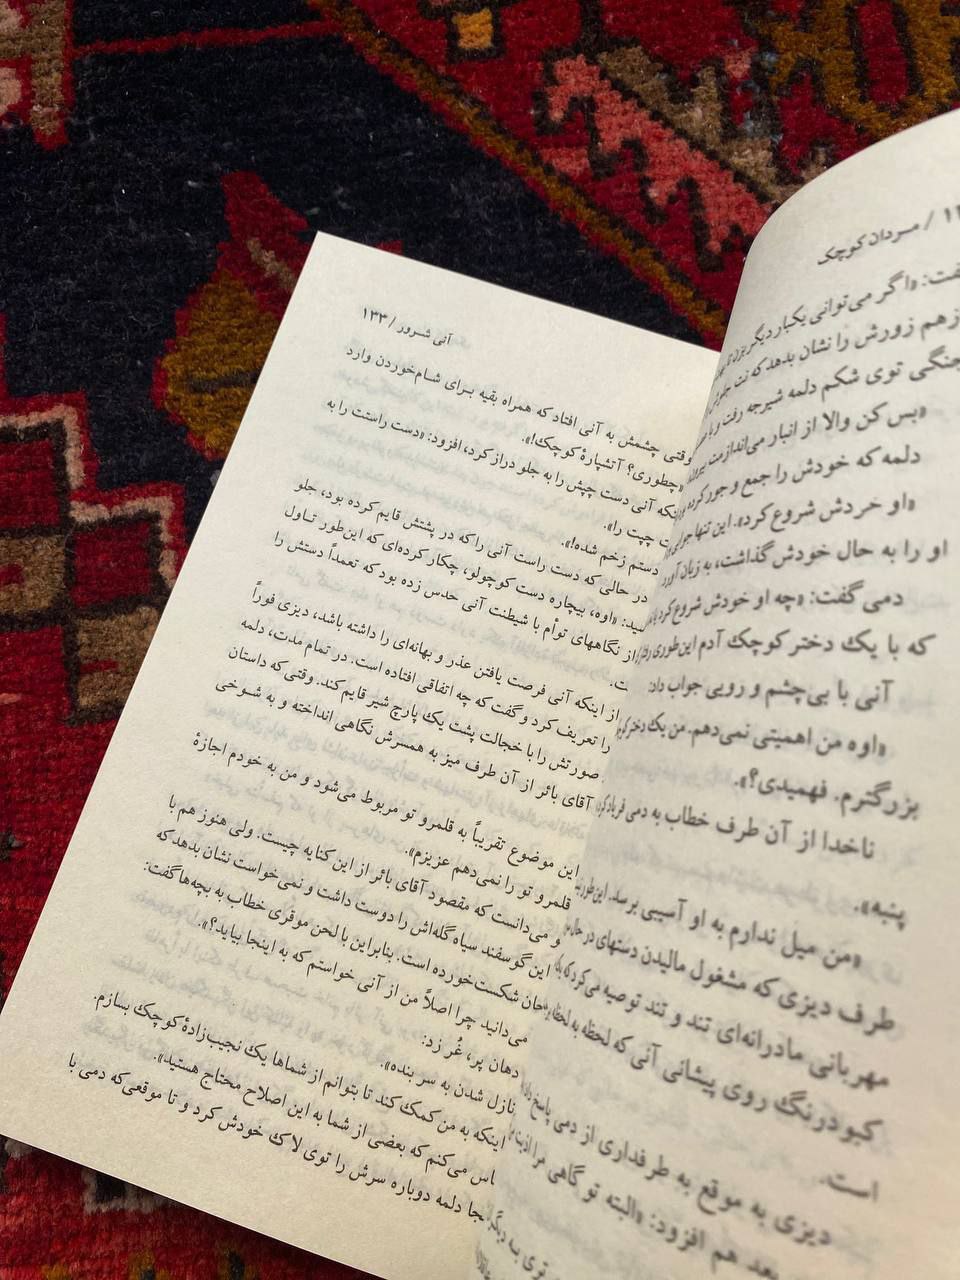 ۱۳ / مردان کوچک
گفت: «اگر می‌توانی یکبار دیگر بزن تا
زهم زورش را نشان بدهد که نت جلوش
جنگی توی شکم دلمه شیرجه رفت و با
«بس کن والا از انبار می‌اندازمت بیرون»
دلمه که خودش را جمع و جور کرده بود
«او خردش شروع کرد». این تنها جوابی
او را به حال خودش گذاشت، به زبان آورد
دمی گفت: «چه او خودش شروع کرد یا
که با یک دختر کوچک آدم این‌طوری رفتار
آنی با بی‌چشم و رویی جواب داد:
«اوه من اهمیتی نمی‌دهم. من یک دختر کوچ
بزرگترم. فهمیدی؟».
ناخدا از آن طرف خطاب به دمی فریاد کرد
پنبه».
«من میل ندارم به او آسیبی برسد. این‌طور
طرف دیزی که مشغول مالیدن دستهای در حال
مهربانی مادرانه‌ای تند و تند توصیه می‌کرد که
کبودرنگ روی پیشانی آنی که لحظه به لحظه
است.
دیزی به موقع به طرفداری از دمی پاسخ داد
بعد هم افزود: «البته تو گاهی مرا اذیت
آنی شرور / ۱۳۳
وقتی چشمش به آنی افتاد که همراه بقیه برای شام‌خوردن وارد
«چطوری؟ آتشپارهٔ کوچک!».
اینکه آنی دست چپش را به جلو دراز کرد، افزود: «دست راستت را به
چپت را».
دستم زخم شده!».
در حالی که دست راست آنی را که در پشتش قایم کرده بود، جلو
«اوه، بیچاره دست کوچولو، چکار کرده‌ای که این‌طور تاول
از نگاههای توأم با شیطنت آنی حدس زده بود که تعمداً دستش را
ت.
از اینکه آنی فرصت یافتن عذر و بهانه‌ای را داشته باشد، دیزی فوراً
را تعریف کرد و گفت که چه اتفاقی افتاده است. در تمام مدت، دلمه
صورتش را با خجالت پشت یک پارچ شیر قایم کند. وقتی که داستان
آقای بائر از آن طرف میز به همسرش نگاهی انداخته و به شوخی
این موضوع تقریباً به قلمرو تو مربوط می‌شود و من به خودم اجازهٔ
قلمرو تو را نمی‌دهم عزیزم».
و می‌دانست که مقصود آقای بائر از این کنایه چیست. ولی هنوز هم با
این گوسفند سیاه گله‌اش را دوست داشت و نمی‌خواست نشان بدهد که
جان شکست‌خورده است. بنابراین با لحن موقری خطاب به بچه‌ها گفت:
می‌دانید چرا اصلاً من از آنی خواستم که به اینجا بیاید؟».
دهان پر، غُر زد:
نازل شدن به سر بنده».
اینکه به من کمک کند تا بتوانم از شماها یک نجیب‌زادهٔ کوچک بسازم.
اس می‌کنم که بعضی از شما به این اصلاح محتاج هستید».
جا دلمه دوباره سرش را توی لاک خودش کرد و تا موقعی‌که دمی با